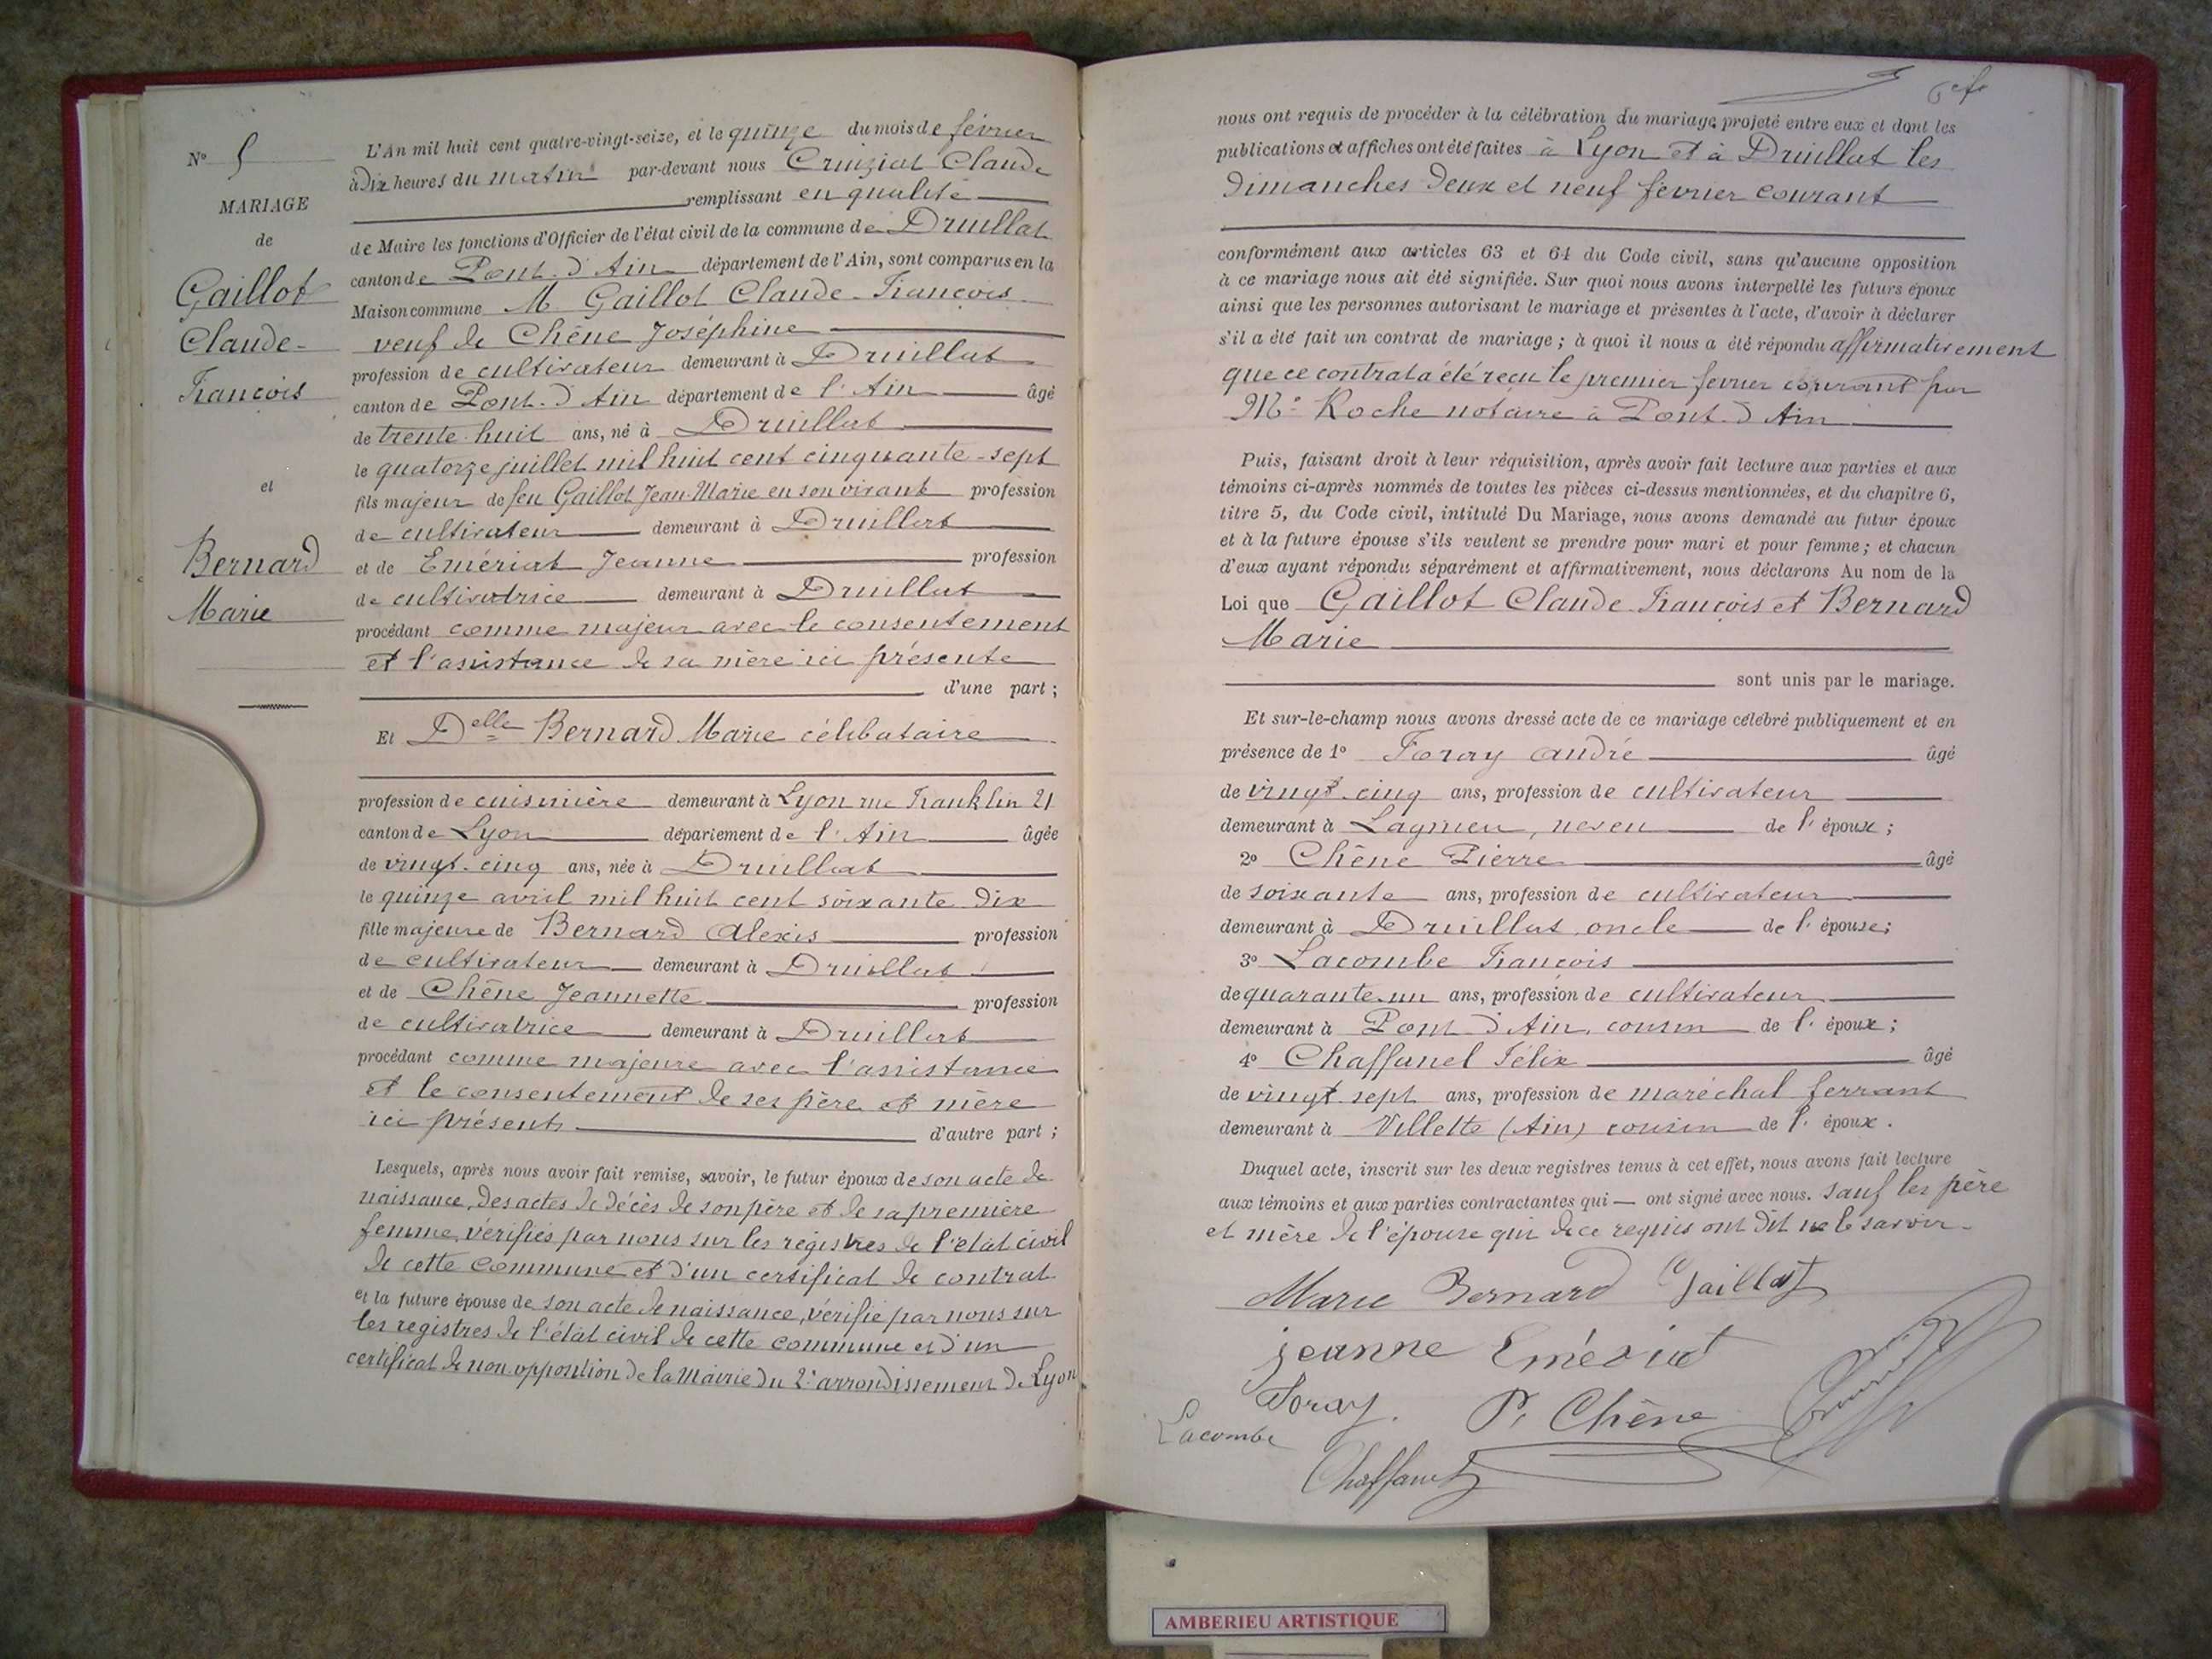 N° 5
MARIAGE
de
Gaillot
Claude-
François
et
Bernard
Marie
L'An mil huit cent quatre-vingt-seize, et le quinze du mois de février
à Dix heures du matin par-devant nous Cruiziat Claude
remplissant en qualité
de Maire les fonctions d'Officier de l'état civil de la commune de Druillat
canton de Pont-d'Ain département de l'Ain, sont comparus en la
Maison commune M Gaillot Claude-François
veuf de Chêne Joséphine
profession de cultivateur demeurant à Druillat
canton de Pont-d'Ain département de l'Ain âgé
de trente-huit ans, né à Druillat
le quatorze juillet mil huit cent cinquante-sept
fils majeur de feu Gaillot Jean-Marie en son vivant profession
de cultivateur demeurant à Druillat
et de Emériat Jeanne profession
de cultivatrice demeurant à Druillat
procédant comme majeur avec le consentement
et l'assistance de sa mère ici présente
d'une part ;
Et Delle Bernard Marie célibataire
profession de cuisinière demeurant à Lyon rue Franklin 21
canton de Lyon département de l'Ain âgée
de vingt-cinq ans, née à Druillat
le quinze avril mil huit cent soixante-dix
fille majeure de Bernard Alexis profession
de cultivateur demeurant à Druillat
et de Chêne Jeannette profession
de cultivatrice demeurant à Druillat
procédant comme majeure avec l'assistance
et le consentement de ses père et mère
ici présents d'autre part ;
Lesquels, après nous avoir fait remise, savoir, le futur époux de son acte de
naissance, des actes de décès de son père et de sa première
femme, vérifiés par nous sur les registres de l'état civil
de cette commune et d'un certificat de contrat
et la future épouse de son acte de naissance, vérifié par nous sur
les registres de l'état civil de cette commune et d'un
certificat de non opposition de la Mairie du 2e arrondissement de Lyon
nous ont requis de procéder à la célébration du mariage projeté entre eux et dont les
publications et affiches ont été faites à Lyon et à Druillat les
dimanches deux et neuf février courant
conformément aux articles 63 et 64 du Code civil, sans qu'aucune opposition
à ce mariage nous ait été signifiée. Sur quoi nous avons interpellé les futurs époux
ainsi que les personnes autorisant le mariage et présentes à l'acte, d'avoir à déclarer
s'il a été fait un contrat de mariage ; à quoi il nous a été répondu affirmativement
que ce contrat a été reçu le premier fevrier courant par
Me Roche notaire à Pont-d'Ain
Puis, faisant droit à leur réquisition, après avoir fait lecture aux parties et aux
témoins ci-après nommés de toutes les pièces ci-dessus mentionnées, et du chapitre 6,
titre 5, du Code civil, intitulé Du Mariage, nous avons demandé au futur époux
et à la future épouse s'ils veulent se prendre pour mari et pour femme ; et chacun
d'eux ayant répondu séparément et affirmativement, nous déclarons Au nom de la
Loi que Gaillot Claude-François et Bernard
Marie
sont unis par le mariage.
Et sur-le-champ nous avons dressé acte de ce mariage célébré publiquement et en
présence de 1° Foray André âgé
de vingt-cinq ans, profession de cultivateur
demeurant à Lagnieu, neveu de l'époux ;
2° Chêne Pierre âgé
de soixante ans, profession de cultivateur
demeurant à Druillat oncle de l'épouse ;
3° Lacombe François
de quarante-un ans, profession de cultivateur
demeurant à Pont-d'Ain, cousin de l'époux ;
4° Chaffanel Félix âgé
de vingt-sept ans, profession de maréchal ferrant
demeurant à Villette (Ain) cousin de l'époux.
Duquel acte, inscrit sur les deux registres tenus à cet effet, nous avons fait lecture
aux témoins et aux parties contractantes qui — ont signé avec nous. Sauf les père
et mère de l'épouse qui de ce requis ont dit ne le savoir
Marie Bernard Gaillot
jeanne Emériat
Foray. P. Chêne
Lacombe
Chaffanel
AMBERIEU ARTISTIQUE